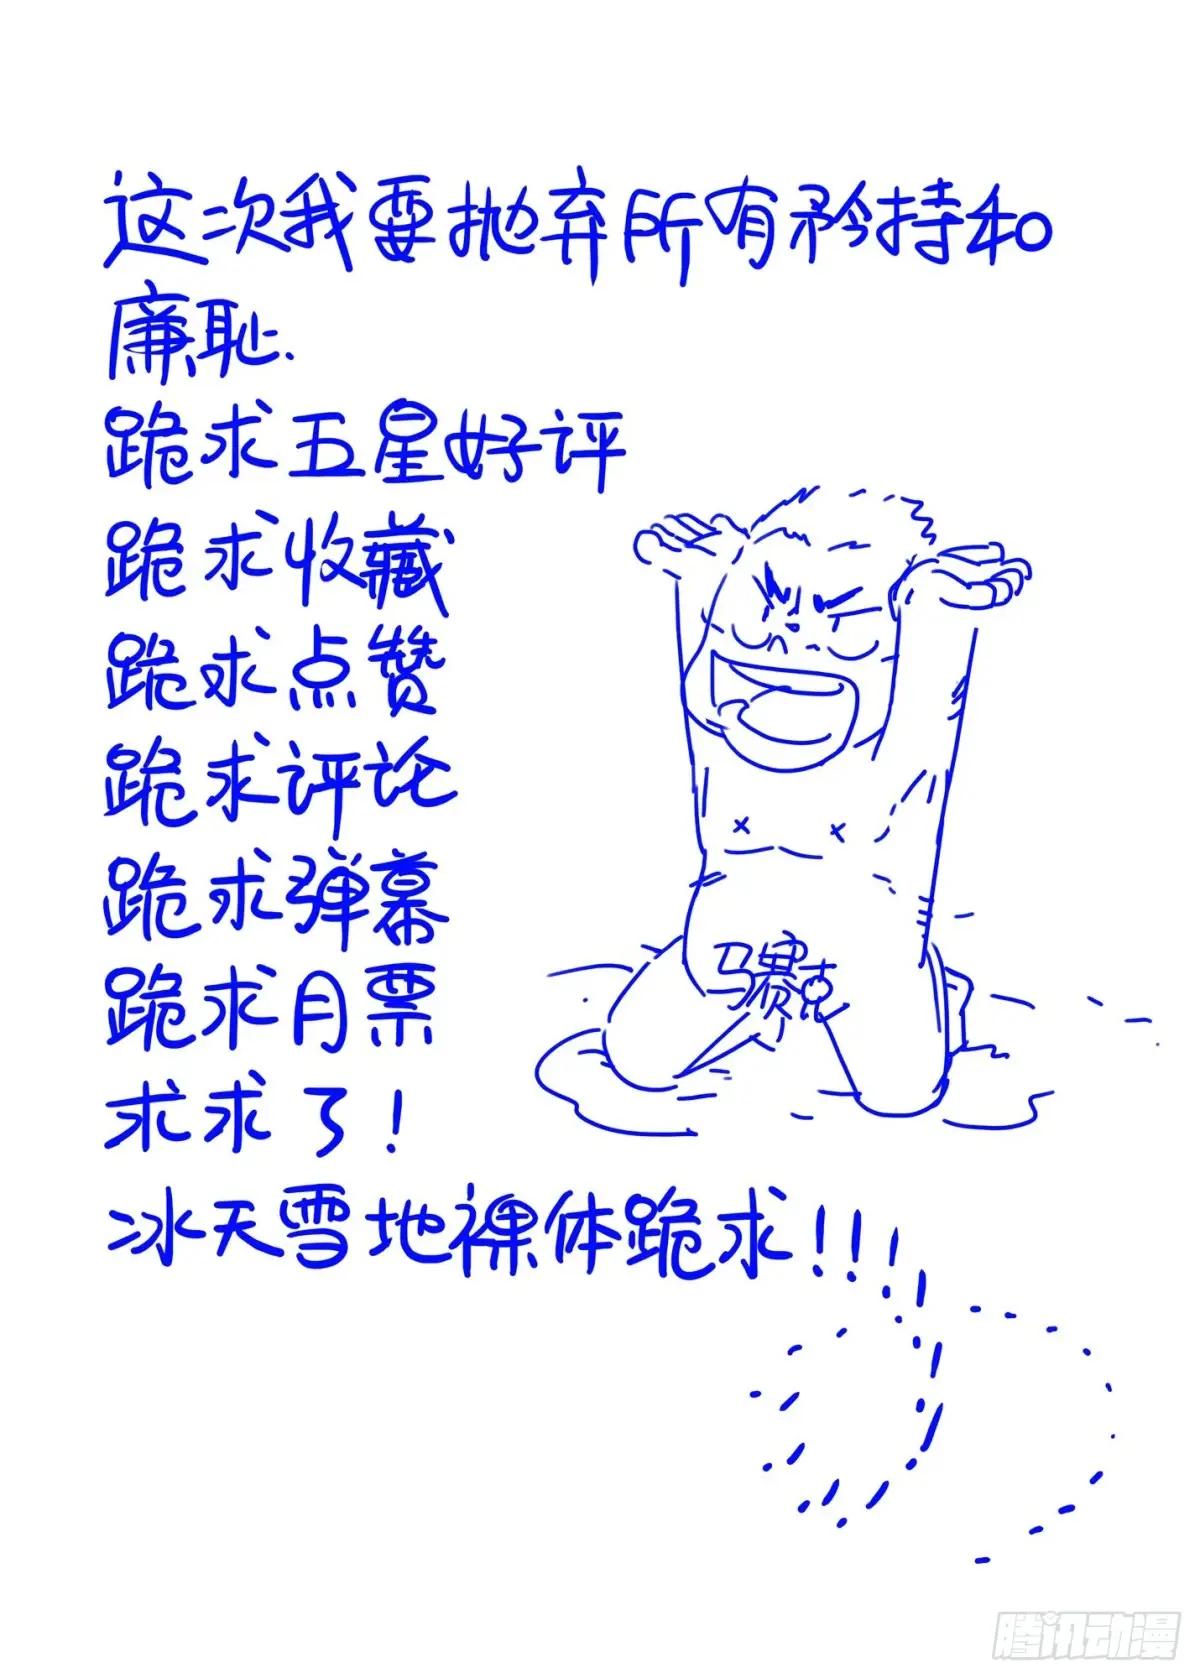 这次我要抛弃所有矜持和
廉耻.
跪求五星好评
跪求收藏
跪求点赞
跪求评论
跪求弹幕
跪求月票
求求了!
马赛克
冰天雪地裸体跪求!!!!!!!
腾讯动漫